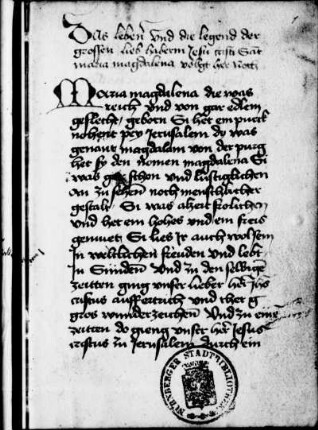 Das leben Vnd die legend der
grossen lieb haberin Jesu cristi Sant
maria magdalena volgt her nach
Maria magdalena die was
reich Vnd von gar edlem
geslecht geborn Si het ein purck
nohent pey Jerusalem do was
genant magdalum von der purg
het sy den nomen magdalena Si
was gar schon vnd lustigklichen
an zu sehen noch menschlicher
gestalt Si was alzeit frolichen
vnd het ein hohes vnd ein freis
gemuet Si lies Jr auch wol sein
In weltlichen freuden vnd lebt
In Sünden Vnd zu den selbige
zeitten ging vnser lieber her ihs
cristus auff ertrich vnd thet g
gros wunderzeichen Vnd zu eine
zeitten do gieng vnser her Jesus
cristus zu Jerusalem durch ein
NÜRNBERGER STADTBIBLIOTHEK